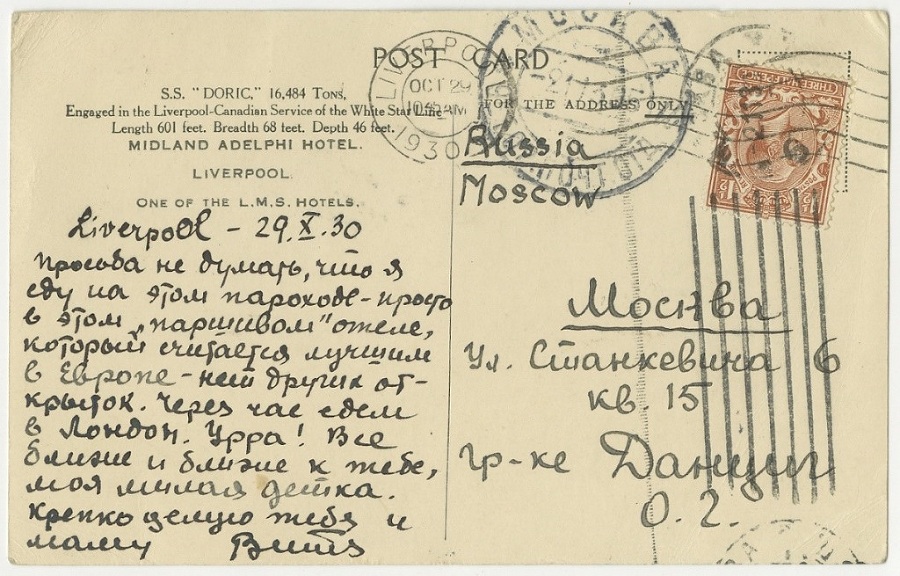 POST CARD
S.S. "DORIC," 16,484 Tons,
Engaged in the Liverpool-Canadian Service of the White Star Line
Length 601 feet. Breadth 68 feet. Depth 46 feet.
MIDLAND ADELPHI HOTEL.
LIVERPOOL.
ONE OF THE L.M.S. HOTELS.
Liverpool – 29.X.30
Просьба не думать, что я
еду на этом пароходе – просто
в этом „паршивом" отеле,
который считается лучшим
в Европе – нет других от-
крыток. Через час едем
в Лондон. Урра! Все
ближе и ближе к тебе,
моя милая детка.
Крепко целую тебя и
маму Витя
LIVERPOOL
OCT 29
1930
МОСКВА
FOR THE ADDRESS ONLY
THREE HALFPENCE
Russia
Moscow
Москва
Ул. Станкевича 6
кв. 15
гр-ке Данциг
О. Г.